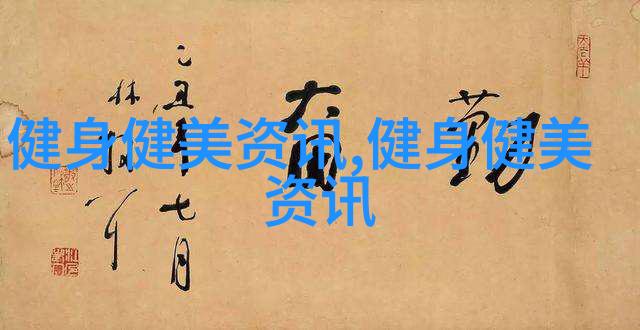 健身健美资讯,健身健美
资讯
勤奋
乙丑年七月
林散耳